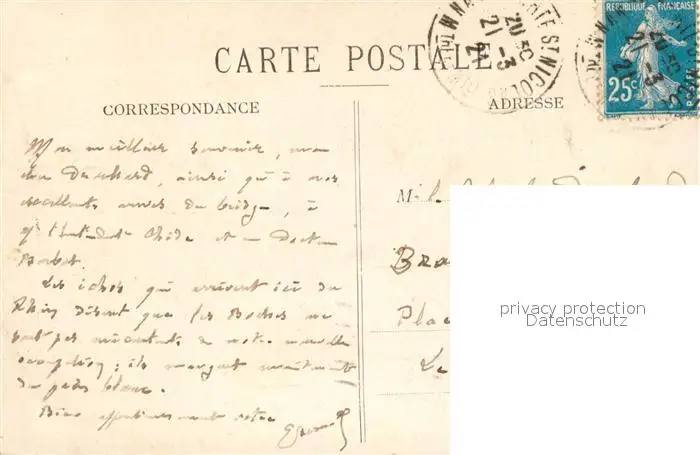 CARTE POSTALE
REPUBLIQUE FRANÇAISE
25c
CORRESPONDANCE
ADRESSE
Mon meilleur souvenir, mon
cher, ainsi qu'à nos
excellents amis du bridge, à
et au Docteur
Les échos qui arrivent ici du
Rhin disent que les Boches ne
sont pas mécontents de notre nouvelle
occupation; ils mangent maintenant
du pain blanc.
Bien affectueusement votre
M.
Bra
Pla
Le
privacy protection
Datenschutz